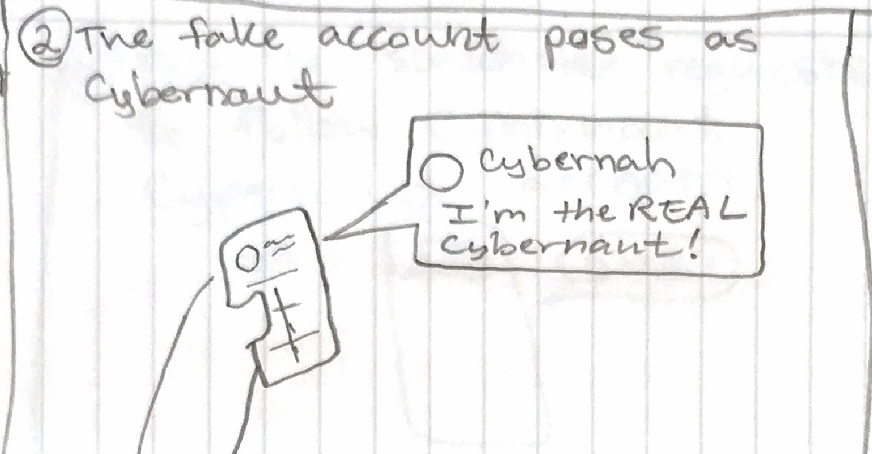 ② The fake account poses as
Cybernaut
Cybernah
I'm the REAL
Cybernaut!